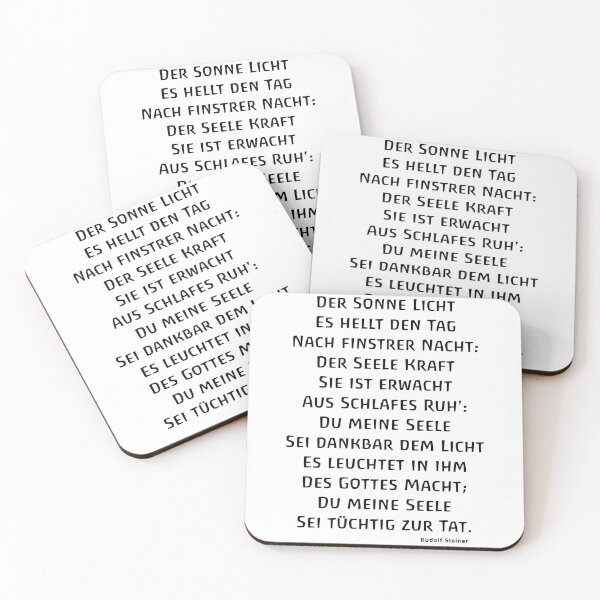 Der Sonne Licht
Es hellt den Tag
Nach finstrer Nacht:
Der Seele Kraft
Sie ist erwacht
Aus Schlafes Ruh':
Seele
dem
ihm
Der Sonne Licht
Es hellt den Tag
Nach finstrer Nacht:
Der Seele Kraft
Sie ist erwacht
Aus Schlafes Ruh':
Du meine Seele
Sei dankbar dem Licht
Es leuchtet in ihm
Der Sonne Licht
Es hellt den Tag
Nach finstrer Nacht:
Der Seele Kraft
Sie ist erwacht
Aus Schlafes Ruh':
Du meine Seele
Sei dankbar dem
Es leuchtet in
Des Gottes
Du meine
Sei tüchtig
Der Sonne Licht
Es hellt den Tag
Nach finstrer Nacht:
Der Seele Kraft
Sie ist erwacht
Aus Schlafes Ruh':
Du meine Seele
Sei dankbar dem Licht
Es leuchtet in ihm
Des Gottes Macht;
Du meine Seele
Sei tüchtig zur Tat.
Rudolf Steiner